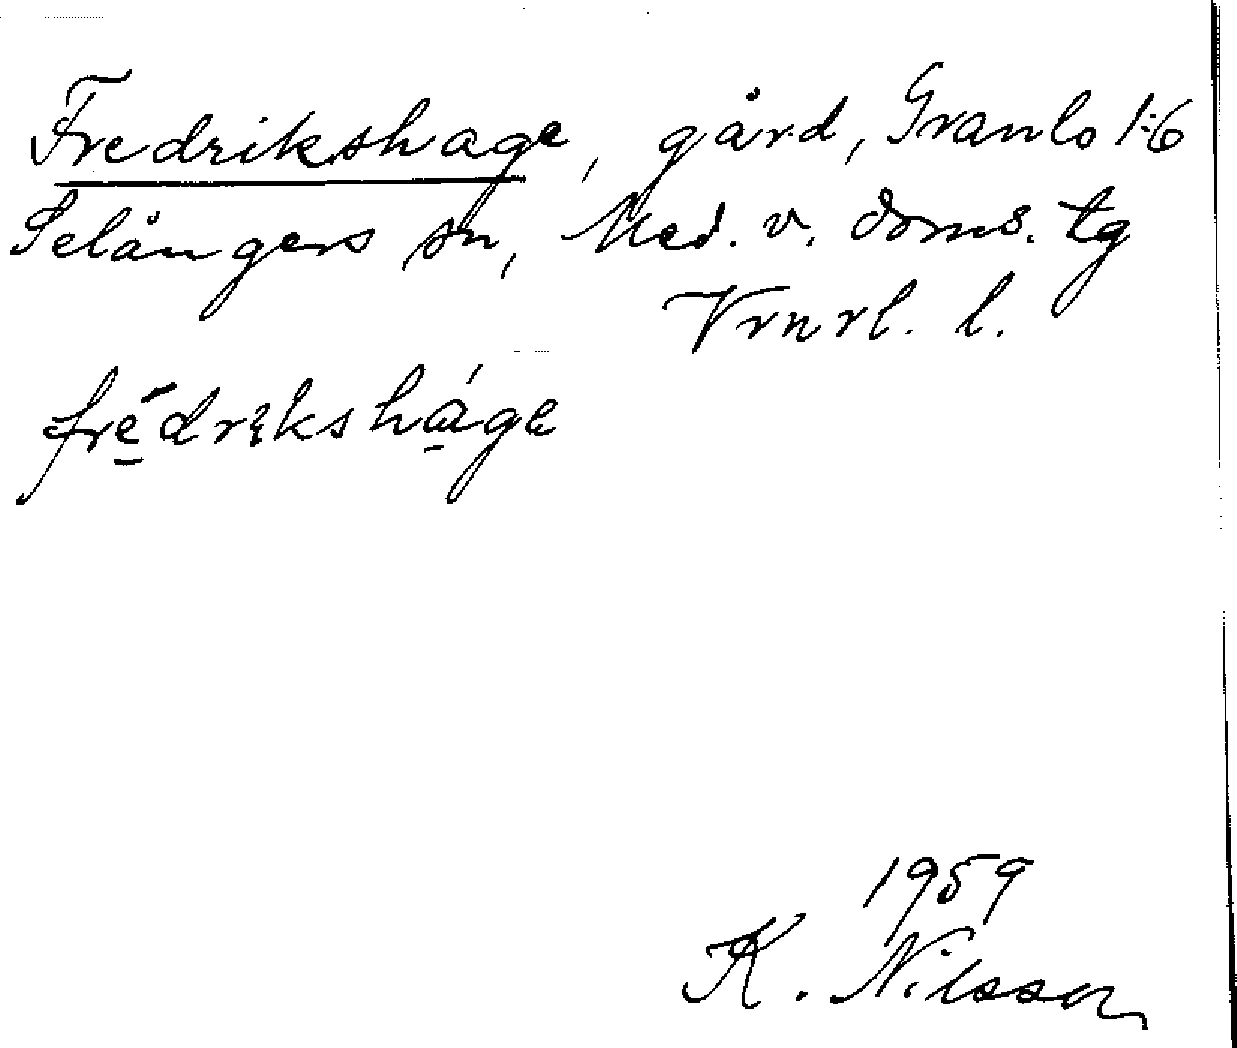 Fredrikshage, gård, Granlo 1:6
Selångers sn, Med. v. doms. tg
Vrnrl. l.
fre̠´driksha̠´ge
1959
K. Nilsson